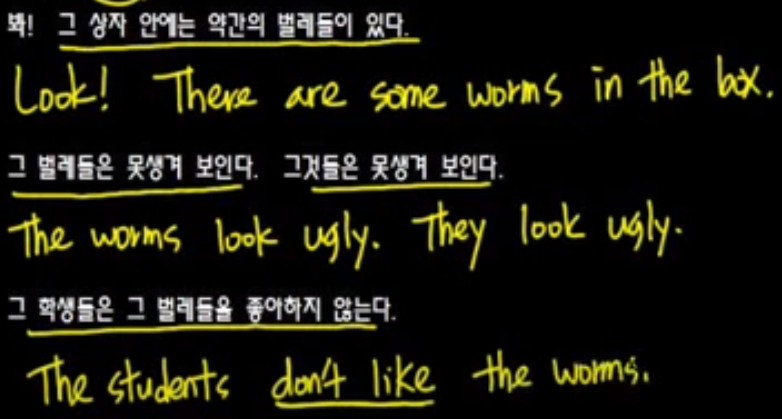 봐! 그 상자 안에는 약간의 벌레들이 있다.
Look! There are some worms in the box.
그 벌레들은 못생겨 보인다. 그것들은 못생겨 보인다.
The worms look ugly. They look ugly.
그 학생들은 그 벌레들을 좋아하지 않는다.
The students don't like the worms.